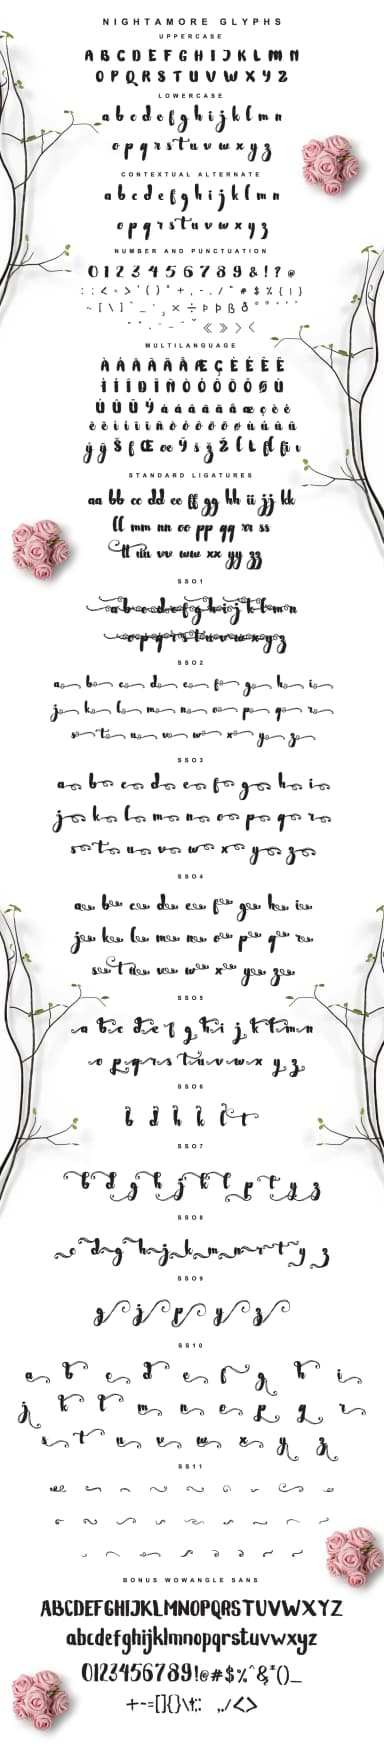 NIGHTAMORE GLYPHS
UPPERCASE
A B C D E F G H I J K L M N
O P Q R S T U V W X Y Z
LOWERCASE
a b c d e f g h i j k l m n
o p q r s t u v w x y z
CONTEXTUAL ALTERNATE
a b c d e f g h i j k l m n
o p q r s t u v w x y z
NUMBER AND PUNCTUATION
0 1 2 3 4 5 6 7 8 9 & ! ? @
MULTILANGUAGE
STANDARD LIGATURES
aa bb cc dd ee ff gg hh ii jj kk
ll mm nn oo pp qq rr ss
tt uu vv ww xx yy zz
SS01
a b c d e f g h i j k l m n
o p q r s t u v w x y z
SS02
a b c d e f g h i
j k l m n o p q r
s t u v w x y z
SS03
a b c d e f g h i
j k l m n o p q r
s t u v w x y z
SS04
a b c d e f g h i
j k l m n o p q r
s t u v w x y z
SS05
a b c d e f g h i j k l m n
o p q r s t u v w x y z
SS06
b d h k l t
SS07
b d g h j k l p t y z
SS08
SS09
g j p y z
SS10
a b c d e f g h i
j k l m n o p q r
s t u v w x y z
SS11
BONUS WOWANGLE SANS
ABCDEFGHIJKLMNOPQRSTUVWXYZ
abcdefghijklmnopqrstuvwxyz
0123456789!@#$%^&*()_
+-=[]{}\|;: ,./<>